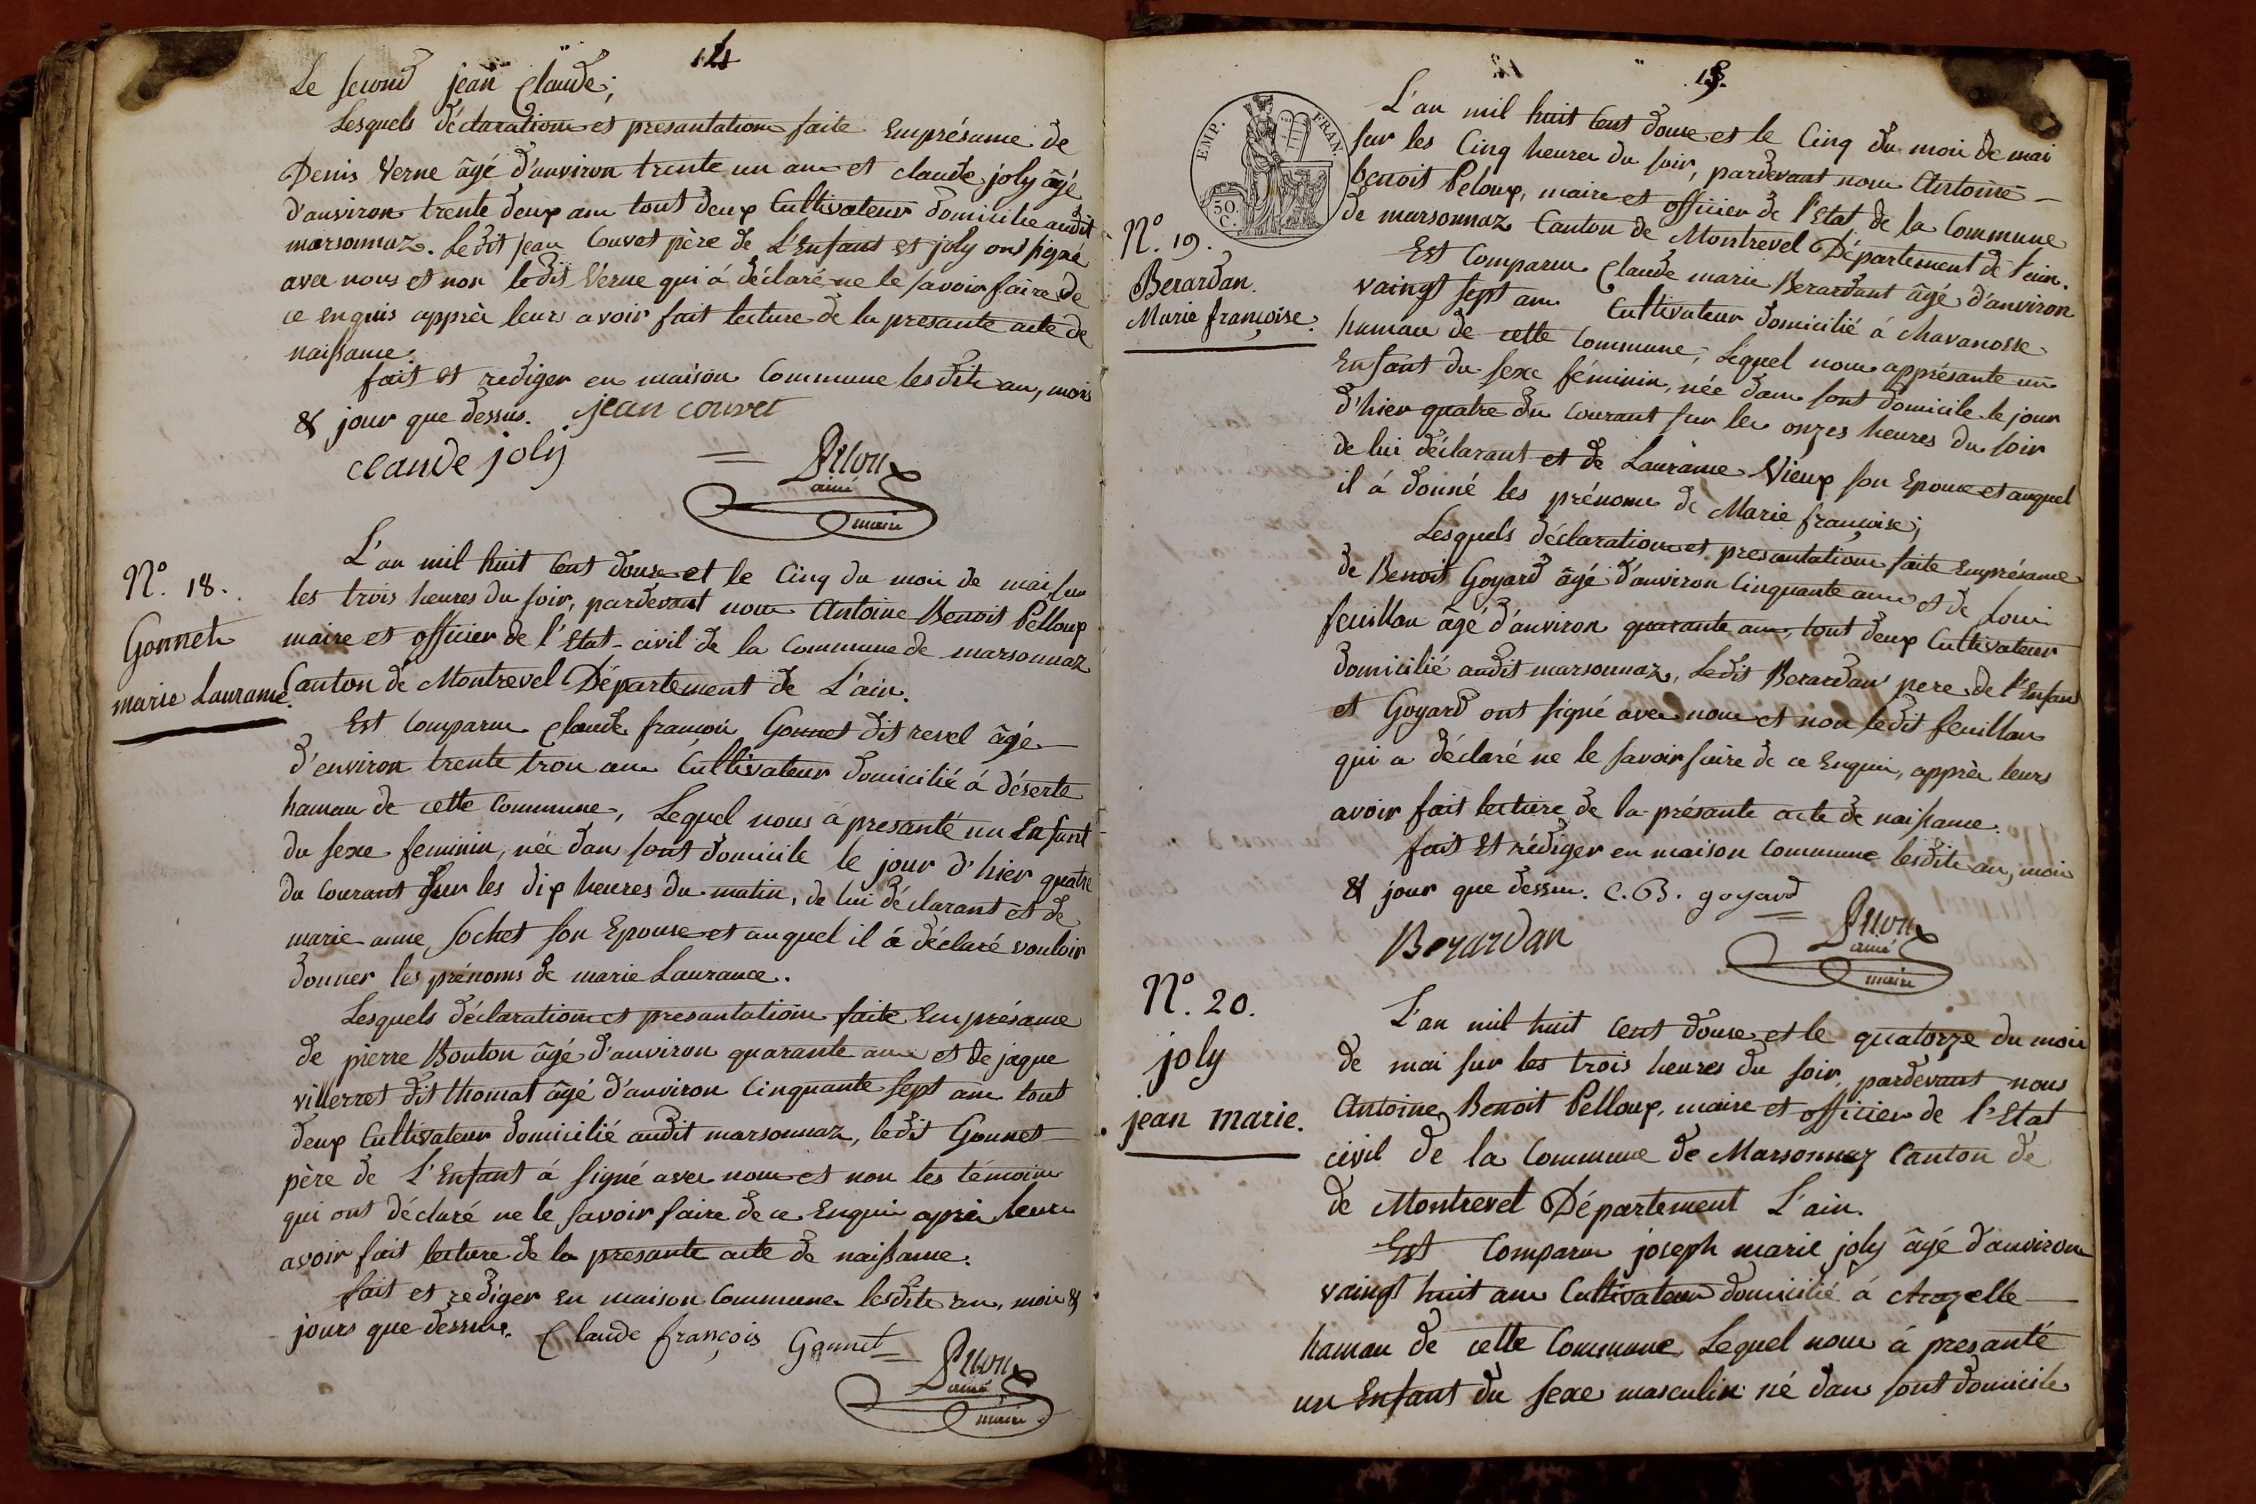 14
Le second jean Claude;
Lesquels déclarations et presantations faite Emprésance de
Denis Verne âgé d'anviron trente un ans et claude joly âgé
d'anviron trente deux ans tout deux Cultivateur domicilié audit
marsonnaz. Ledit jean Couvet père de L'Enfant et joly ont signé
avec nous et non ledit Verne qui á déclaré ne le savoir faire de
ce enquis apprèt leurs avoir fait lecture de la presante acte de
naissance.
fait et rediger en maison Commune lesdits an, mois
& jour que dessus. jean couvet
claude joly
ainé
maire
N.º 18.
Gonnet
marie Laurance.
L'an mil huit Cent douze et le Cinq du mois de mai sur
les trois heures du soir, pardevant nous Antoine Benoit Pelloux
maire et officier de l'Etat-civil de la Commune de marsonnaz
Canton de Montrevel Département de L'ain.
Est Comparru Claude françois Gonnet dit revel âgé
d'environ trente trois ans Cultivateur domicilié á déserte
hamau de cette Commune, Lequel nous á presanté un Enfant
du sexe feminin, née dans sont domicile le jour d'hier quatre
du courant sur les dix heures du matin, de lui déclarant et de
marie anne Sochet son Epouse et auquel il á déclaré vouloir
donner les prénoms de marie Laurance.
Lesquels déclarations et presantations faite Emprésance
de pierre Bouton âgé d'anviron quarante ans et de jaque
villerret dit thomat âgé d'anviron Cinquante sept ans tout
deux Cultivateur domicilié audit marsonnaz, ledit Gonnet
père de L'Enfant á signé avec nous et non les témoins
qui ont déclaré ne le savoir faire de ce Enquis après leurs
avoir fait lecture de la presante acte de naissance.
fait et rediger en maison Commune lesdits an, mois &
jours que dessus. Claude françois Gonnet
ainé
maire
15.
EMP. FRAN.
50 C.
N.º 19.
Berardan.
Marie françoise.
L'an mil huit Cent douze et le Cinq du mois de mai
sur les Cinq heures du soir, pardevant nous Antoine
benoit Peloux, maire et officier de l'Etat de la Commune
de marsonnaz Canton de Montrevel Département de l'ain.
Est Comparru Claude marie Berardant âgé d'anviron
vaingt sept ans Cultivateur domicilié á chavanosse
hamau de cette Commune, Lequel nous apprésante un
Enfant du sexe féminin, née dans sont domicile le jour
d'hier quatre du Courant sur les onzes heures du soir
de lui déclarant et de Laurance Vieux son Epouse et auquel
il á donné les prénoms de Marie françoise;
Lesquels déclarations et presantations faite Emprésance
de Benoit Goyard âgé d'anviron Cinquante ans et de Louis
feuillan âgé d'anviron quarante ans, tout deux Cultivateur
domicilié audit marsonnaz, Ledit Berardan pere de l'Enfant
et Goyard ont signé avec nous et non ledit feuillan
qui a déclaré ne le savoir faire de ce Enquis, apprèt leurs
avoir fait lecture de la présante acte de naissance.
fait Et rédiger en maison Commune lesdits an, mois
& jour que dessus. C. B. goyard
Berardan
ainé
maire
N.º 20.
joly
jean marie.
L'an mil huit Cent douze et le quatorze du mois
de mai sur les trois heures du soir, pardevant nous
Antoine Benoit Pelloux, maire et officier de l'Etat
civil de la Commune de Marsonnaz Canton de
de Montrevel Département L'ain.
Est Comparru joseph marie joly âgé d'anviron
vaingt huit ans Cultivateur domicilié á chazelle
hamau de cette Commune Lequel nous á presanté
un Enfant du sexe masculin né dans sont domicile